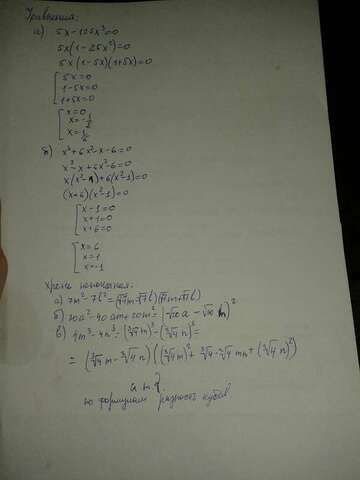 Уравнения:
а) 5x-125x³=0
5x(1-25x²)=0
5x(1-5x)(1+5x)=0
5x=0
1-5x=0
1+5x=0
x=0
x=-1/5
x=1/5
б) x³+6x²-x-6=0
x³-x+6x²-6=0
x(x²-1)+6(x²-1)=0
(x+6)(x²-1)=0
x-1=0
x+1=0
x+6=0
x=6
x=1
x=-1
Хрень непонятная:
а) 7m²-7l²=(√7m-√7l)(√7m+√7l)
б) 10a²-40am+40m²=
в) 4m³-4n³=(∛4m)³-(∛4n)³=
=(∛4m-∛4n)((∛4m)²+∛4·∛4mn+(∛4n)²)
по формулам разность кубов